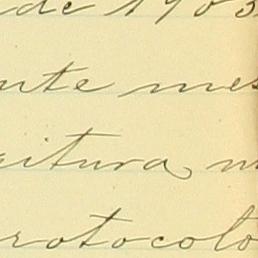 de 1903
nte mes
ritura n
rotocolo